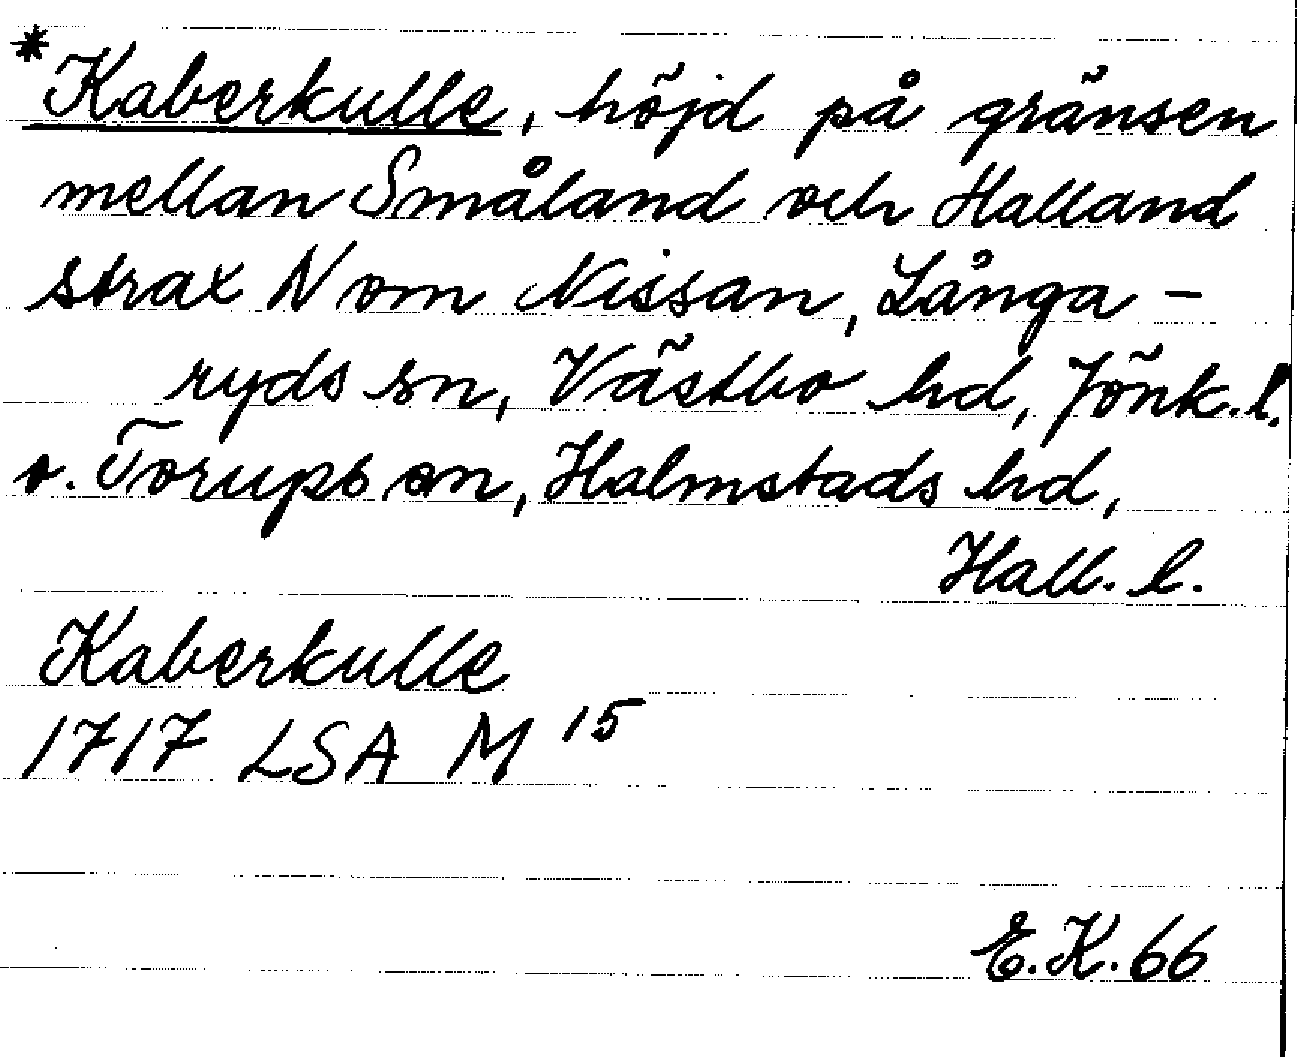 *Kaberkulle, höjd på gränsen
mellan Småland och Halland
strax N om Nissan, Långa-
ryds sn, Västbo hd, Jönk. l.
o. Torups sn, Halmstads hd,
Hall. l.
Kaberkulle
1717 LSA M 15
E.K. 66